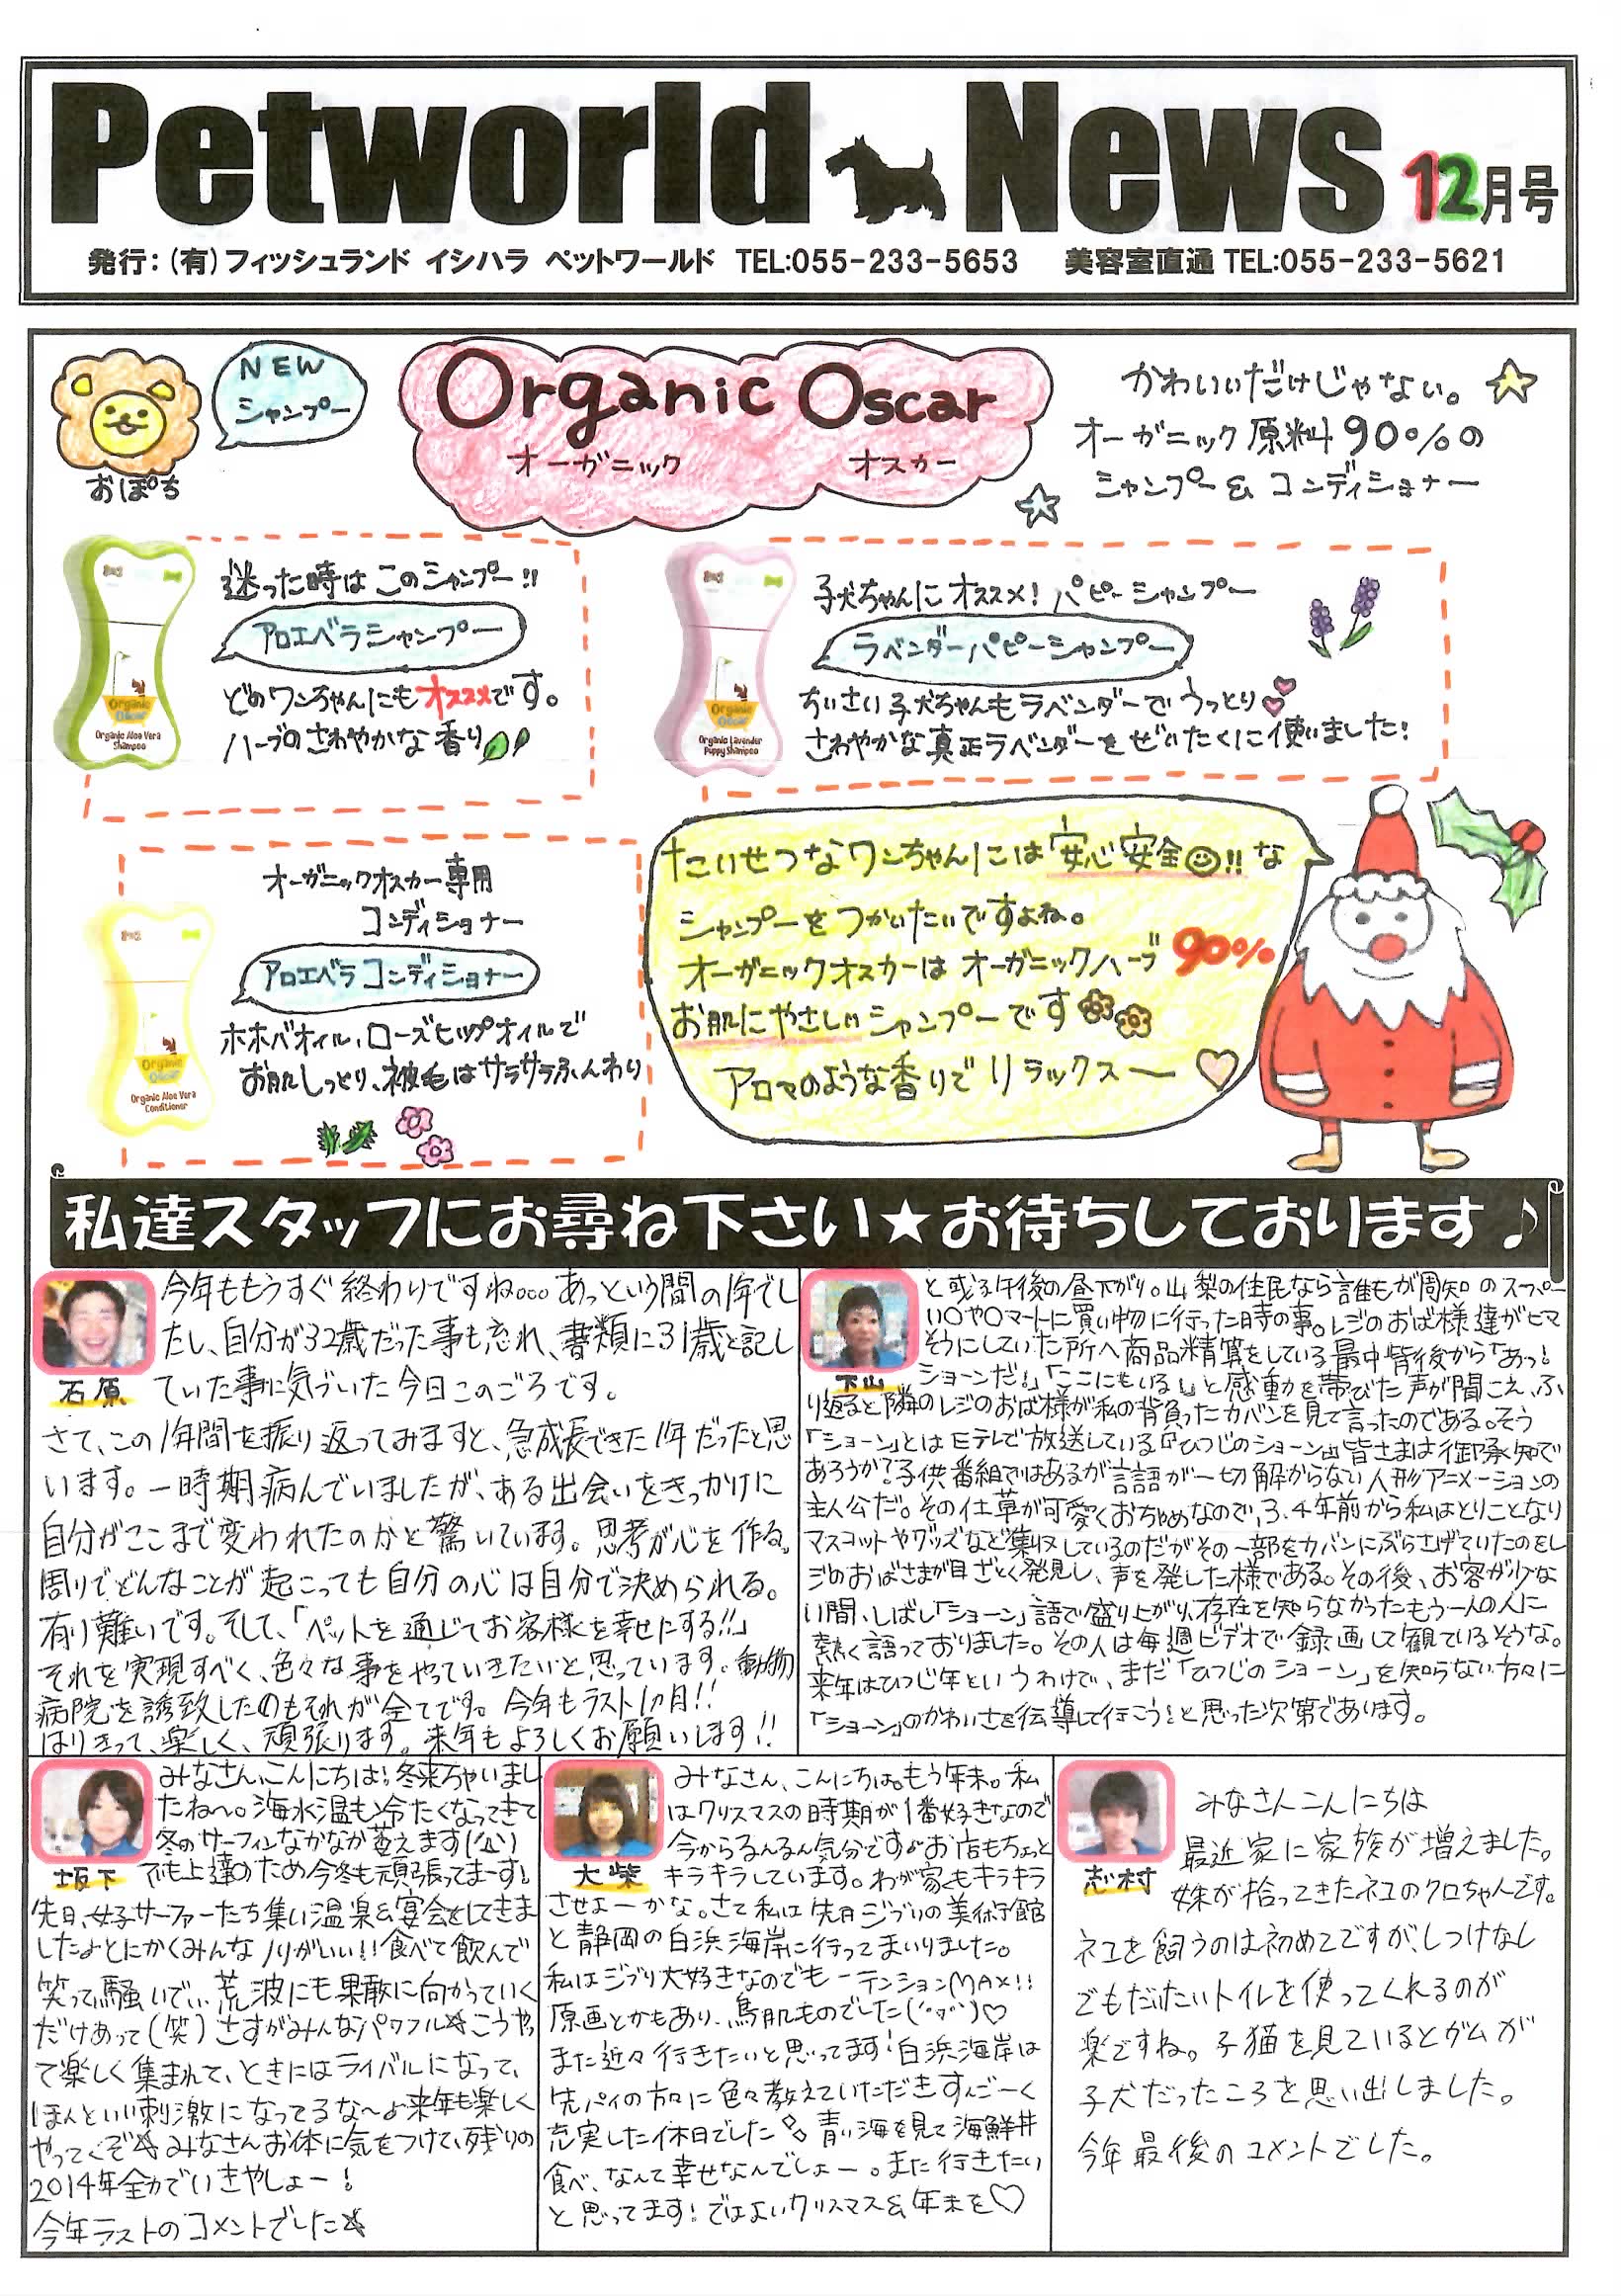 Petworld News 12月号
発行：(有)フィッシュランド イシハラ ペットワールド TEL:055-233-5653 美容室直通 TEL:055-233-5621
おぽち
NEW
シャンプー
Organic Oscar
オーガニック オスカー
かわいいだけじゃない。
オーガニック原料90%の
シャンプー& コンディショナー
迷った時は このシャンプー!!
アロエベラシャンプー
どのワンちゃんにもオススメです。
ハーブのさわやかな香り
Organic Oscar
Organic Aloe Vera
Shampoo
子犬ちゃんにオススメ! パピーシャンプー
ラベンダーパピーシャンプー
ちいさい子犬ちゃんもラベンダーでうっとり
さわやかな真正ラベンダーをぜいたくに使いました!
Organic Oscar
Organic Lavender
Puppy Shampoo
オーガニックオスカー専用
コンディショナー
アロエベラコンディショナー
ホホバオイル、ローズヒップオイルで
お肌しっとり、被毛はサラサラふんわり
Organic Oscar
Organic Aloe Vera
Conditioner
たいせつなワンちゃんには安心安全!!な
シャンプーをつかいたいですよね。
オーガニックオスカーは オーガニックハーブ 90%
お肌にやさしいシャンプーです
アロマのような香りでリラックスー
私達スタッフにお尋ね下さい★お待ちしております♪
石原
今年ももうすぐ終わりですね。。。あっという間の1年でし
たし、自分が32歳だった事も忘れ、書類に31歳と記し
ていた事に気づいた今日このごろです。
さて、この1年間を振り返ってみますと、急成長できた1年だったと思
います。一時期病んでいましたが、ある出会いをきっかけに
自分がここまで変われたのかと驚いています。思考が心を作る。
周りでどんなことが起こっても自分の心は自分で決められる。
有り難いです。そして、「ペットを通じてお客様を幸せにする!!」
それを実現すべく、色々な事をやっていきたいと思っています。動物
病院を誘致したのもそれが全てです。今年もラスト1ヵ月!!
はりきって、楽しく、頑張ります。来年もよろしくお願いします!!
下山
と或る午後の昼下がり。山梨の住民なら誰もが周知のスーパー
い○や○マートに買い物に行った時の事。レジのおば様達がヒマ
そうにしていた所へ商品精算をしている最中背後から「あっ!
ショーンだ!」「ここにもいる!」と感動を帯びた声が聞こえ、ふ
り返ると隣のレジのおば様が私の背負ったカバンを見て言ったのである。そう
「ショーン」とはEテレで放送している『ひつじのショーン』皆さまは御承知で
あろうか?子供番組ではあるが言語が一切解からない人形アニメーションの
主人公だ。その仕草が可愛くおちゃめなので、3、4年前から私はとりことなり
マスコットやグッズなど集収しているのだがその一部をカバンにぶらさげていたのをレ
ジのおばさまが目ざとく発見し、声を発した様である。その後、お客が少な
い間、しばし「ショーン」語で盛り上がり、存在を知らなかったもう一人の人に
熱く語っておりました。その人は毎週ビデオで録画して観ているそうな。
来年はひつじ年というわけで、まだ「ひつじのショーン」を知らない方々に
「ショーン」のかわいさを伝導して行こう!と思った次第であります。
坂下
みなさんこんにちは!冬来ちゃいまし
たね〜。海水温も冷たくなってきて
冬のサーフィンなかなか萎えます
でも上達のため今冬も頑張ってまーす!
先日、女子サーファーたち集い温泉&宴会をしてきま
したよとにかくみんなノリがいい!!食べて飲んで
笑って騒いで… 荒波にも果敢に向かっていく
だけあって(笑)さすがみんなパワフル☆こうやっ
て楽しく集まれて、ときにはライバルになって、
ほんといい刺激になってるな〜♪来年も楽しく
やってくぞ☆みなさんお体に気をつけて、残りの
2014年全力でいきやしょー!
今年ラストのコメントでした☆
大柴
みなさん、こんにちは。もう年末。私
はクリスマスの時期が1番好きなので
今からるんるん気分です♪お店もちょっと
キラキラしています。わが家もキラキラ
させよーかな。さて私は先月ジブリの美術館
と静岡の白浜海岸に行ってまいりました。
私はジブリ大好きなのでもーテンションMAX!!
原画とかもあり、鳥肌ものでした♡
また近々行きたいと思ってます!白浜海岸は
先パイの方々に色々教えていただきすんごーく
充実した休日でした 青い海を見て海鮮丼
食べ、なんて幸せなんでしょー。また行きたい
と思ってます!ではよいクリスマス&年末を♡
志村
みなさんこんにちは
最近家に家族が増えました。
妹が拾ってきたネコのクロちゃんです。
ネコを飼うのは初めてですが、しつけなし
でもだいたいトイレを使ってくれるのが
楽ですね。子猫を見ているとガムが
子犬だったころを思い出しました。
今年最後のコメントでした。